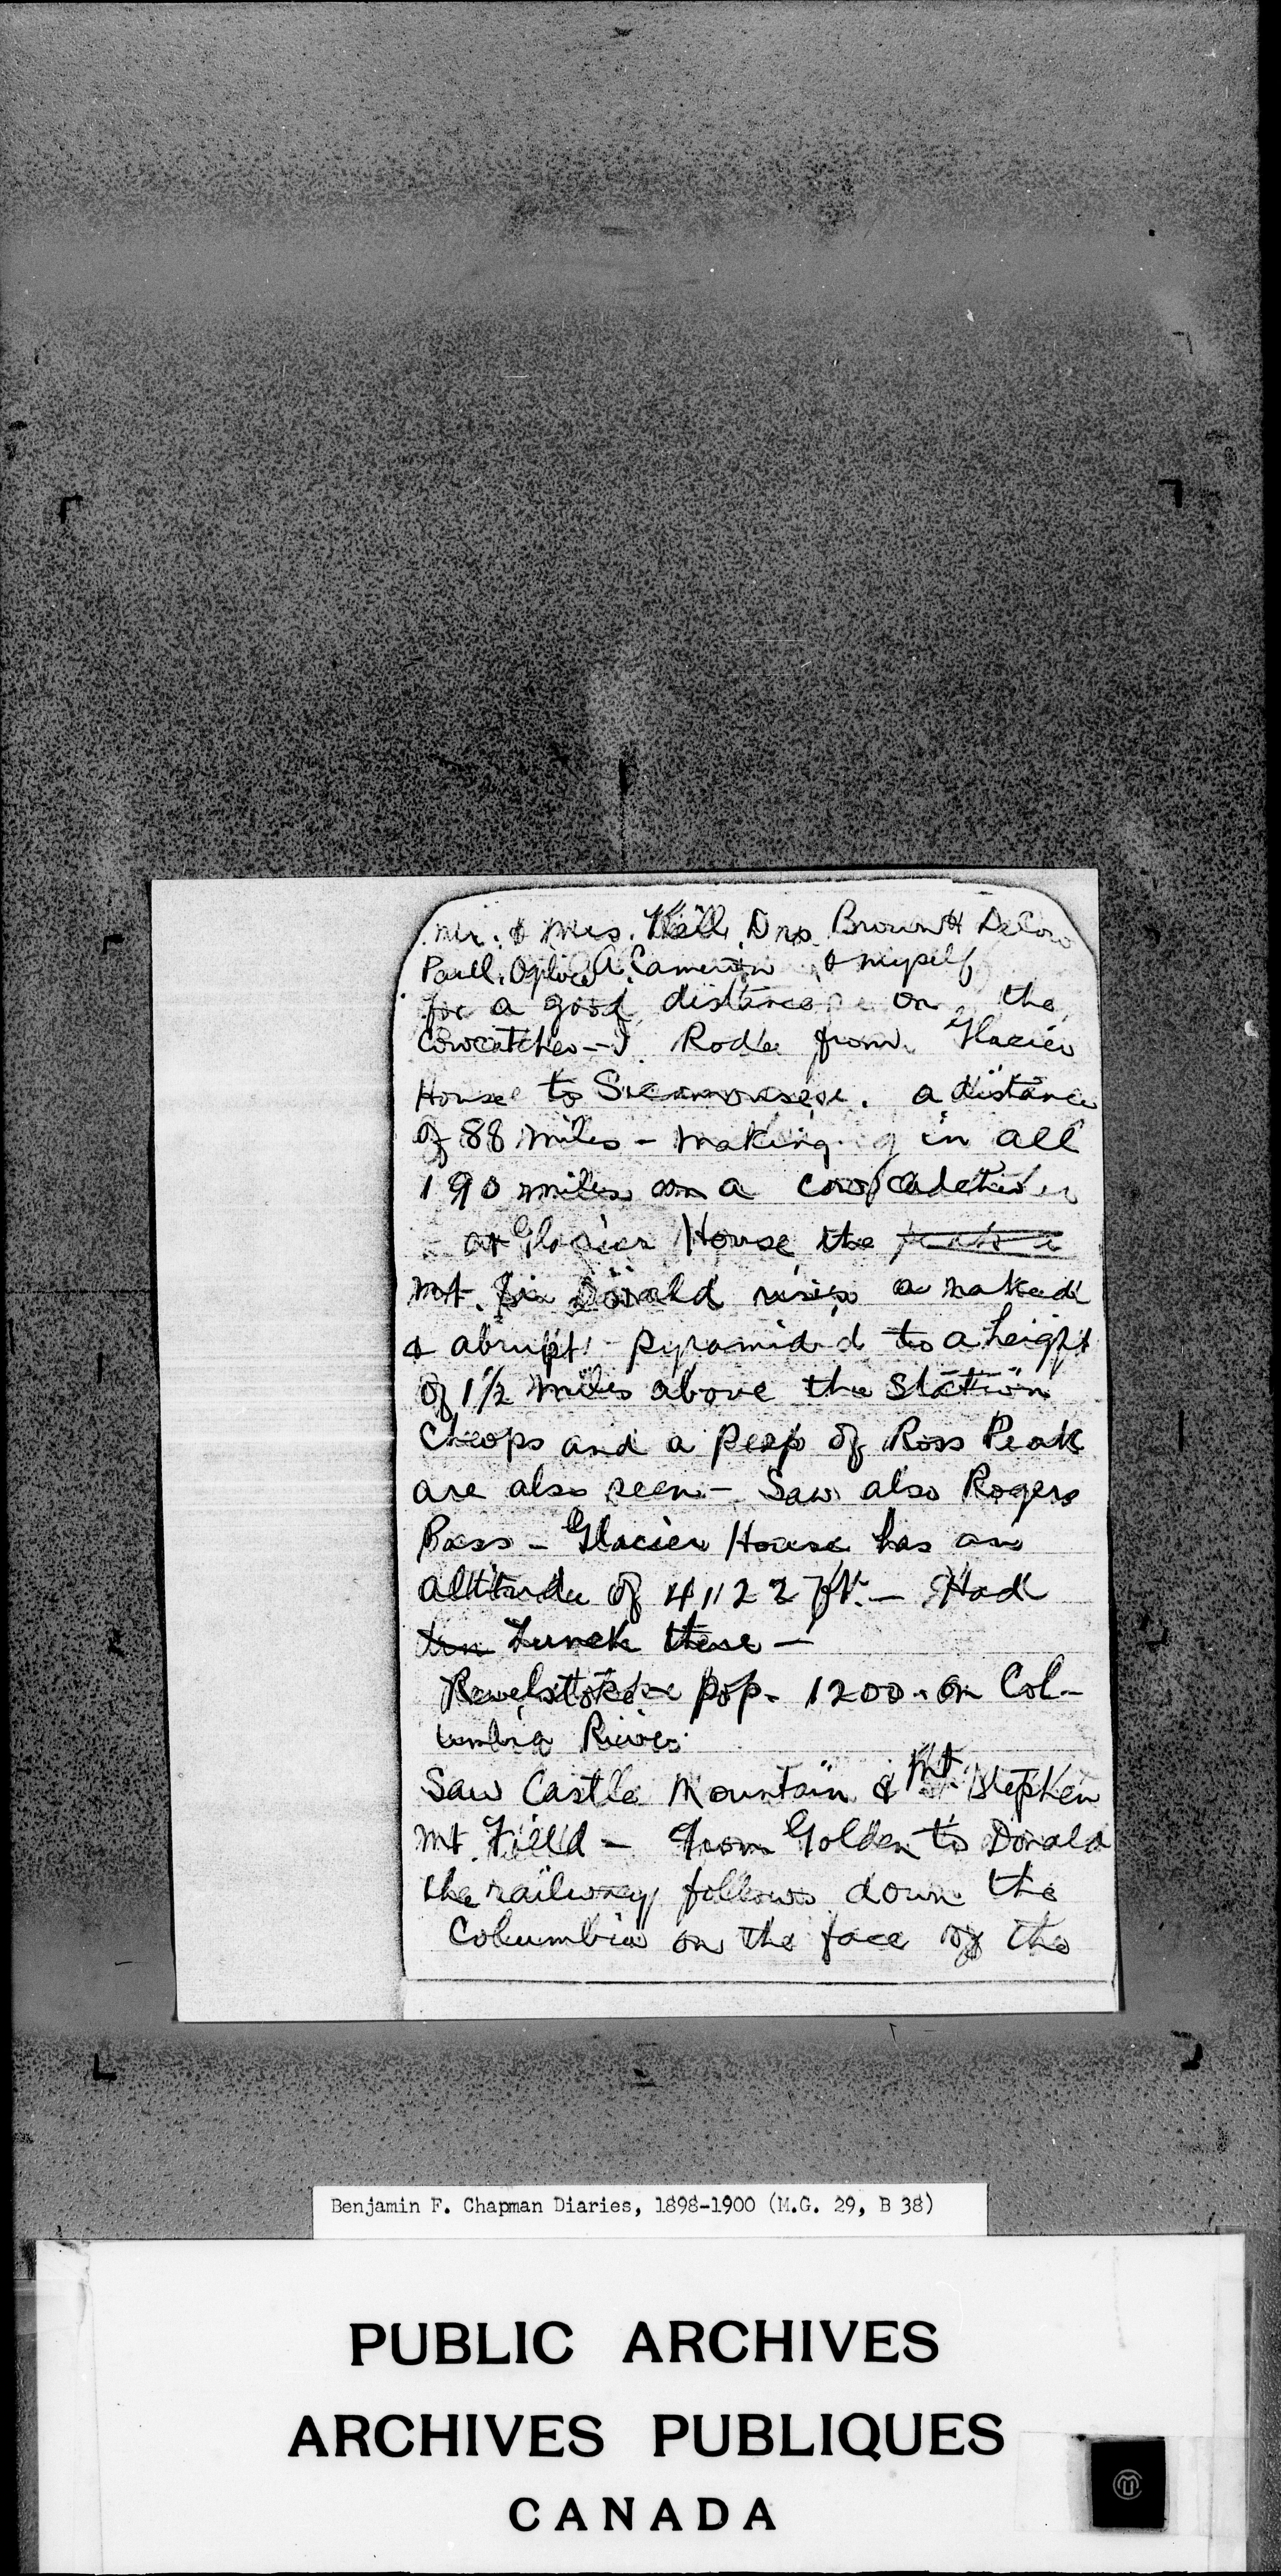 Mr. & Mrs. Hall, Drs. Brown H
Paull, Ogilvie A. Cameron & myself
for a good distance on the
Cowcatcher - I Rode from Glacier
House to Sicamouse. a distance
of 88 miles - making in all
190 miles on a cowcatcher
- at Glacier House the
Mt. Sir Donald rises a naked
& abrupt pyramid to a height
of 1 1/2 miles above the station
Cheops and a peep of Ross Peak
are also seen - Saw also Rogers
Pass - Glacier House has an
altitude of 4,122 ft. - Had
Lunch there -
Revelstoke pop. 1200 - on Col-
umbia River.
Saw Castle Mountain & Mt. Stephen
Mt. Field - From Golden to Donald
the railway follows down the
Columbia on the face of the
Benjamin F. Chapman Diaries, 1898-1900 (M.G. 29, B 38)
PUBLIC ARCHIVES
ARCHIVES PUBLIQUES
CANADA